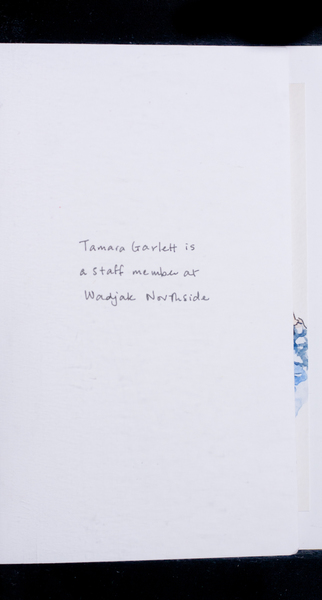 Tamara Garlett is
a staff member at
Wadjak Northside